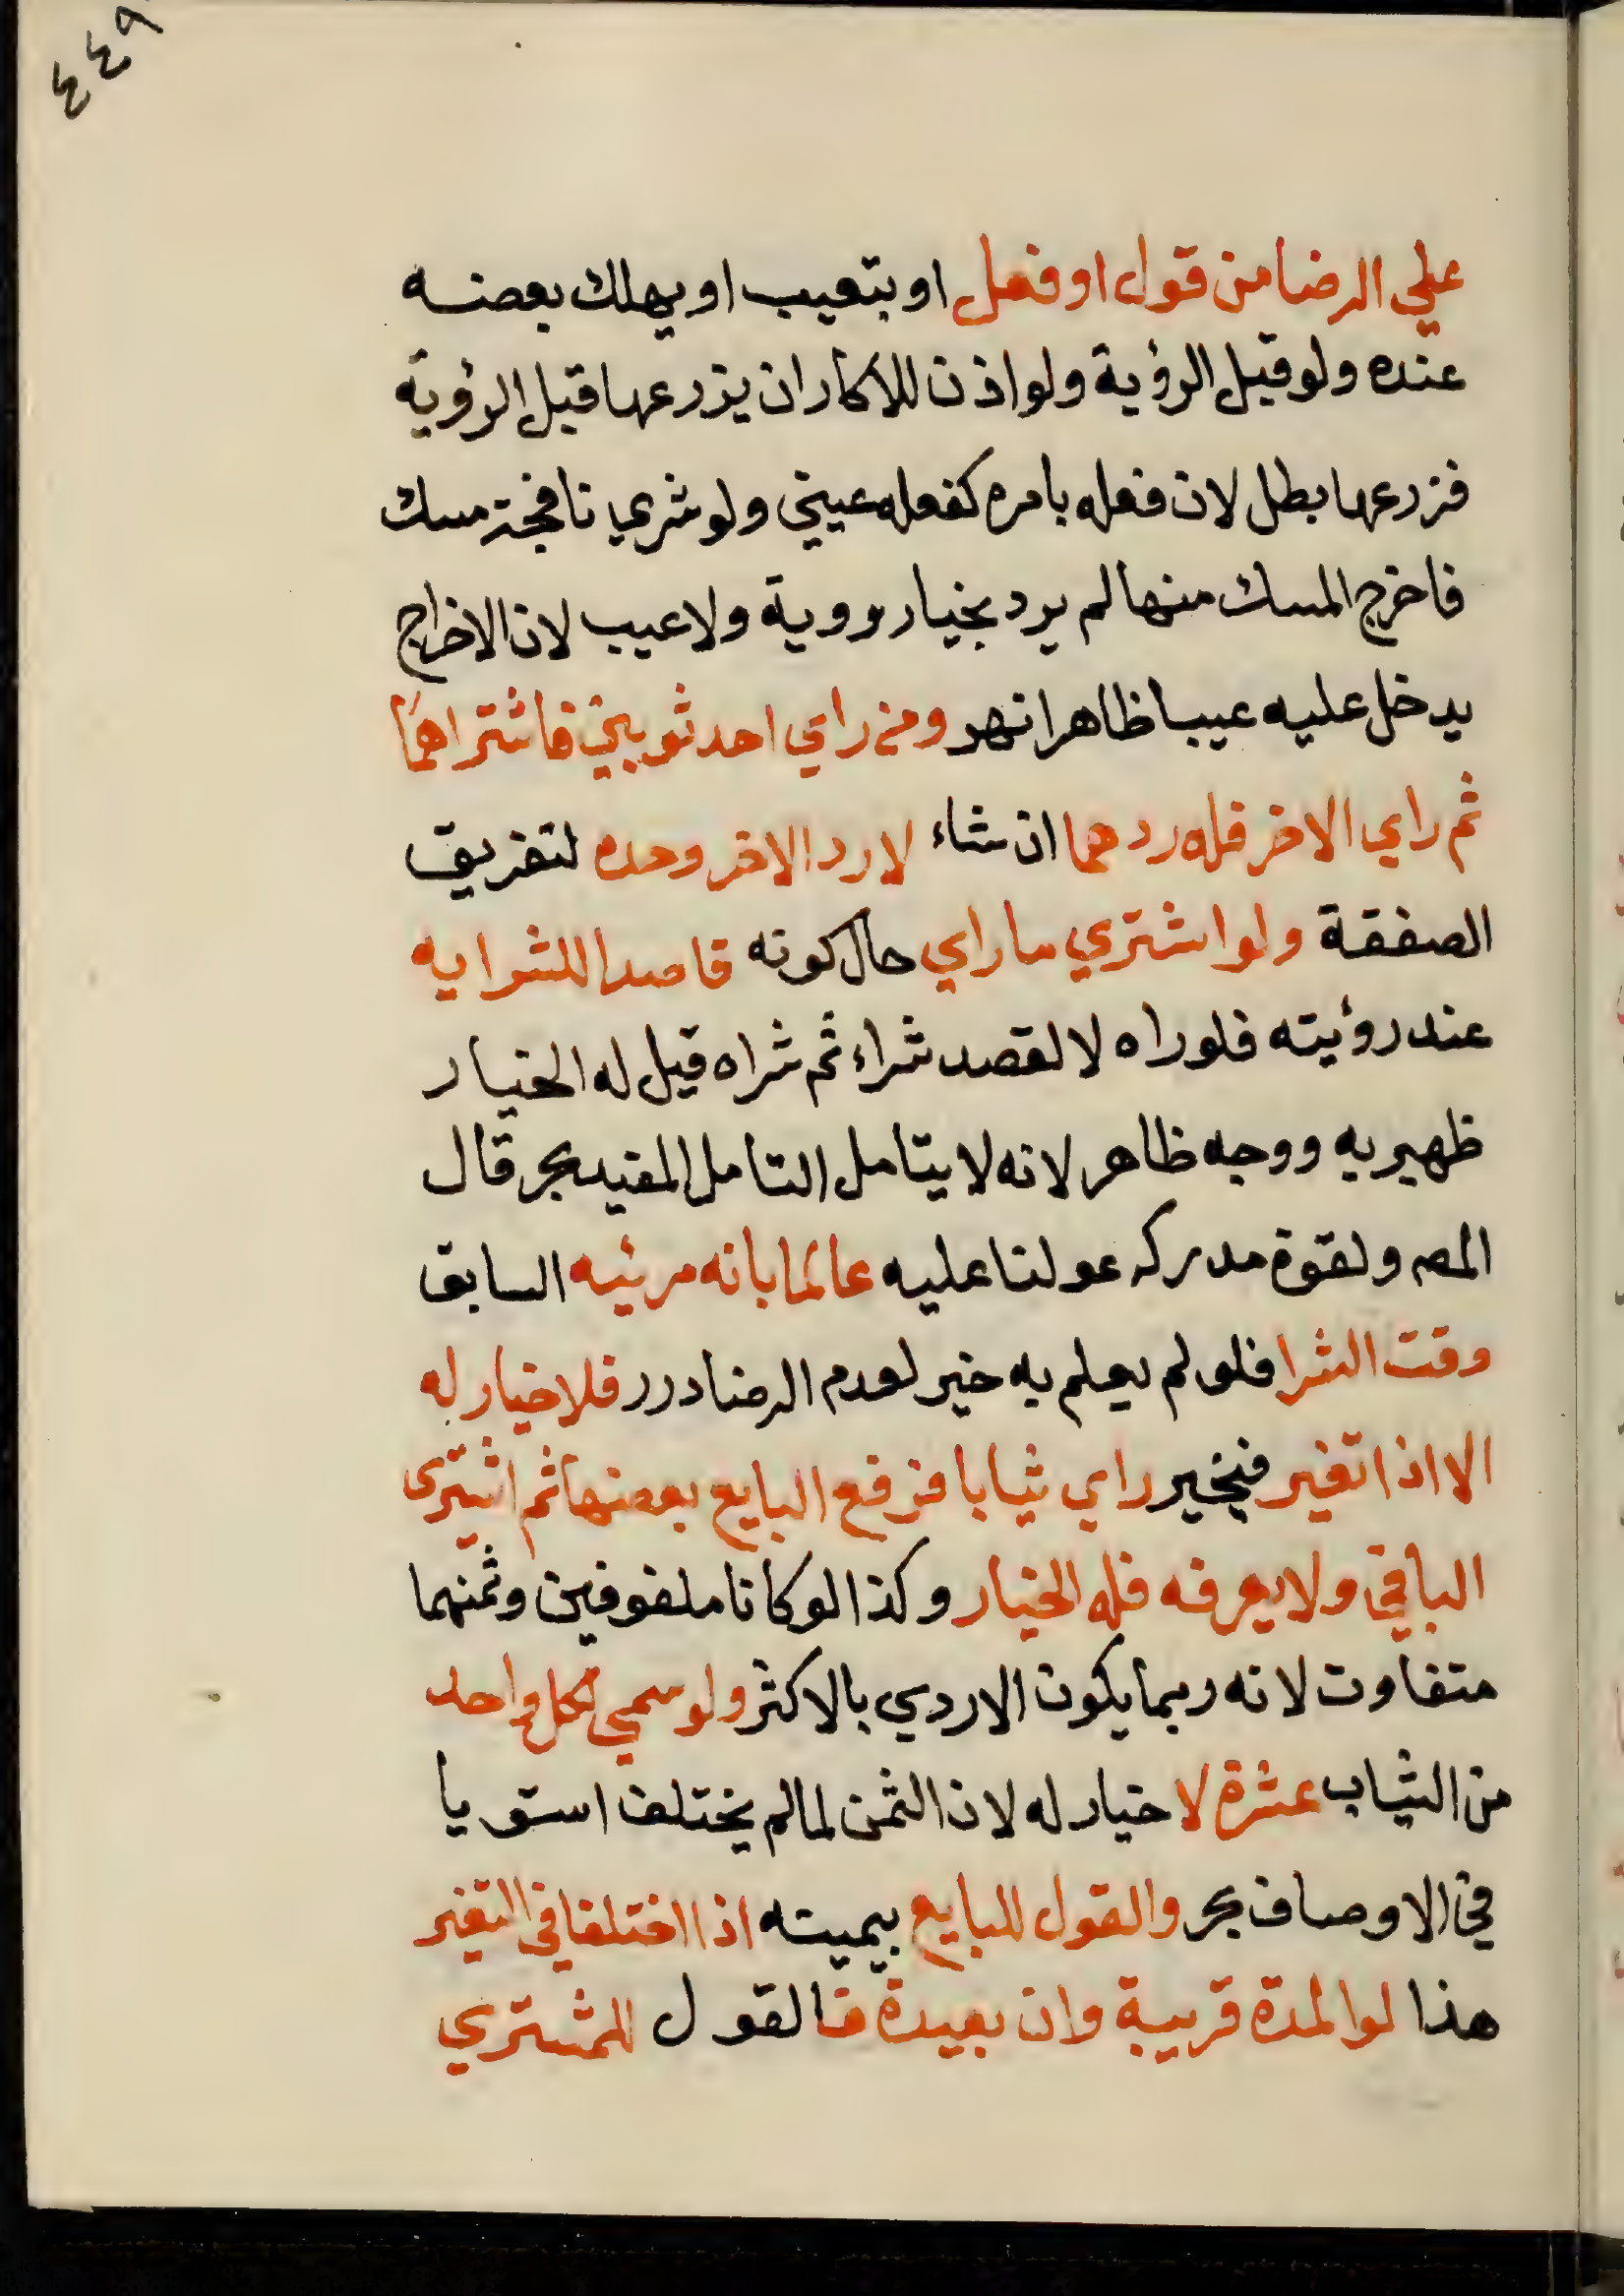 ٤٤٩
علي الرضا من قول او فعل او بتعيب او يهلك بعضه
عنده ولو قبل الرؤية ولو اذن للاكار ان يزرعها قبل الرؤية
فزرعها بطل لان فعله بامره كفعله عيني ولو شري نافجة مسك
فاخرج المسك منها لم يرد بخيار رووية ولا عيب لان الاخراج
يدخل عليه عيبا ظاهرا نهر ومن راي احد ثوبين فاشتراهما
ثم راي الاخر فله ردهما ان شاء لا رد الاخر وحده لتفريق
الصفقة ولو اشتري ما راي حال كونه قاصدا للشرايه
عند رؤيته فلو راه لا لقصد شراء ثم شراه قيل له الخيار
ظهيريه ووجه ظاهر لانه لا يتامل التامل المفيد بحر قال
المص ولقوة مدركه عولنا عليه عالما بانه مرئيه السابق
وقت الشرا فلو لم يعلم به خير لعدم الرضا درر فلا خيار له
الا اذا تغير فيخير راي ثيابا فرفع البايع بعضها ثم اشترى
الباقي ولا يعرفه فله الخيار وكذا لو كانا ملفوفين وثمنهما
متفاوت لانه ربما يكون الاردي بالاكثر ولو سمي لكل واحد
من الثياب عشرة لا خيار له لان الثمن لما لم يختلف استويا
في الاوصاف بحر والقول للبايع بيمينه اذا اختلفا في التغير
هذا لو المدة قريبة وان بعيدة فالقول للمشتري